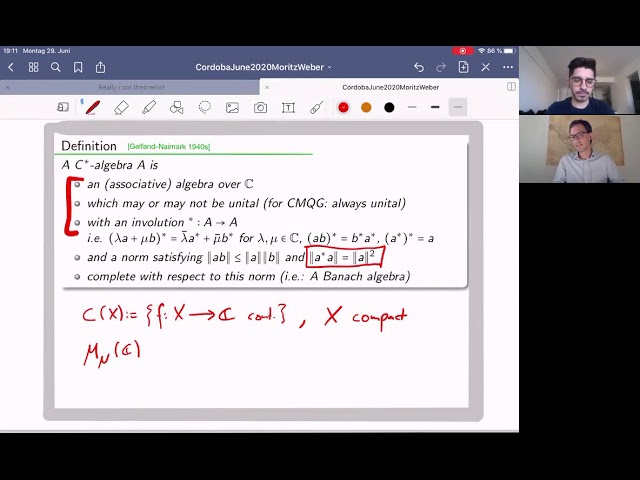 19:11 Montag 29. Juni
86 %
CordobaJune2020MoritzWeber
Really cool theorems!
CordobaJune2020MoritzWeber
Definition [Gelfand-Naimark 1940s]
A C*-algebra A is
an (associative) algebra over ℂ
which may or may not be unital (for CMQG: always unital)
with an involution * : A → A
i.e. (λa + μb)* = λ̄a* + μ̄b* for λ, μ ∈ ℂ, (ab)* = b*a*, (a*)* = a
and a norm satisfying ‖ab‖ ≤ ‖a‖‖b‖ and ‖a*a‖ = ‖a‖²
complete with respect to this norm (i.e.: A Banach algebra)
C(X) := {f: X → ℂ cont.}, X compact
M_N(ℂ)